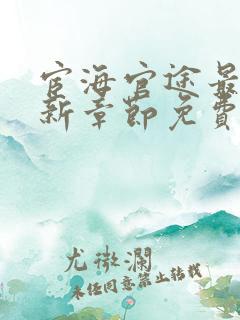 宦海官途最
新章節免費
尤微瀾
未任同意禁止轉載